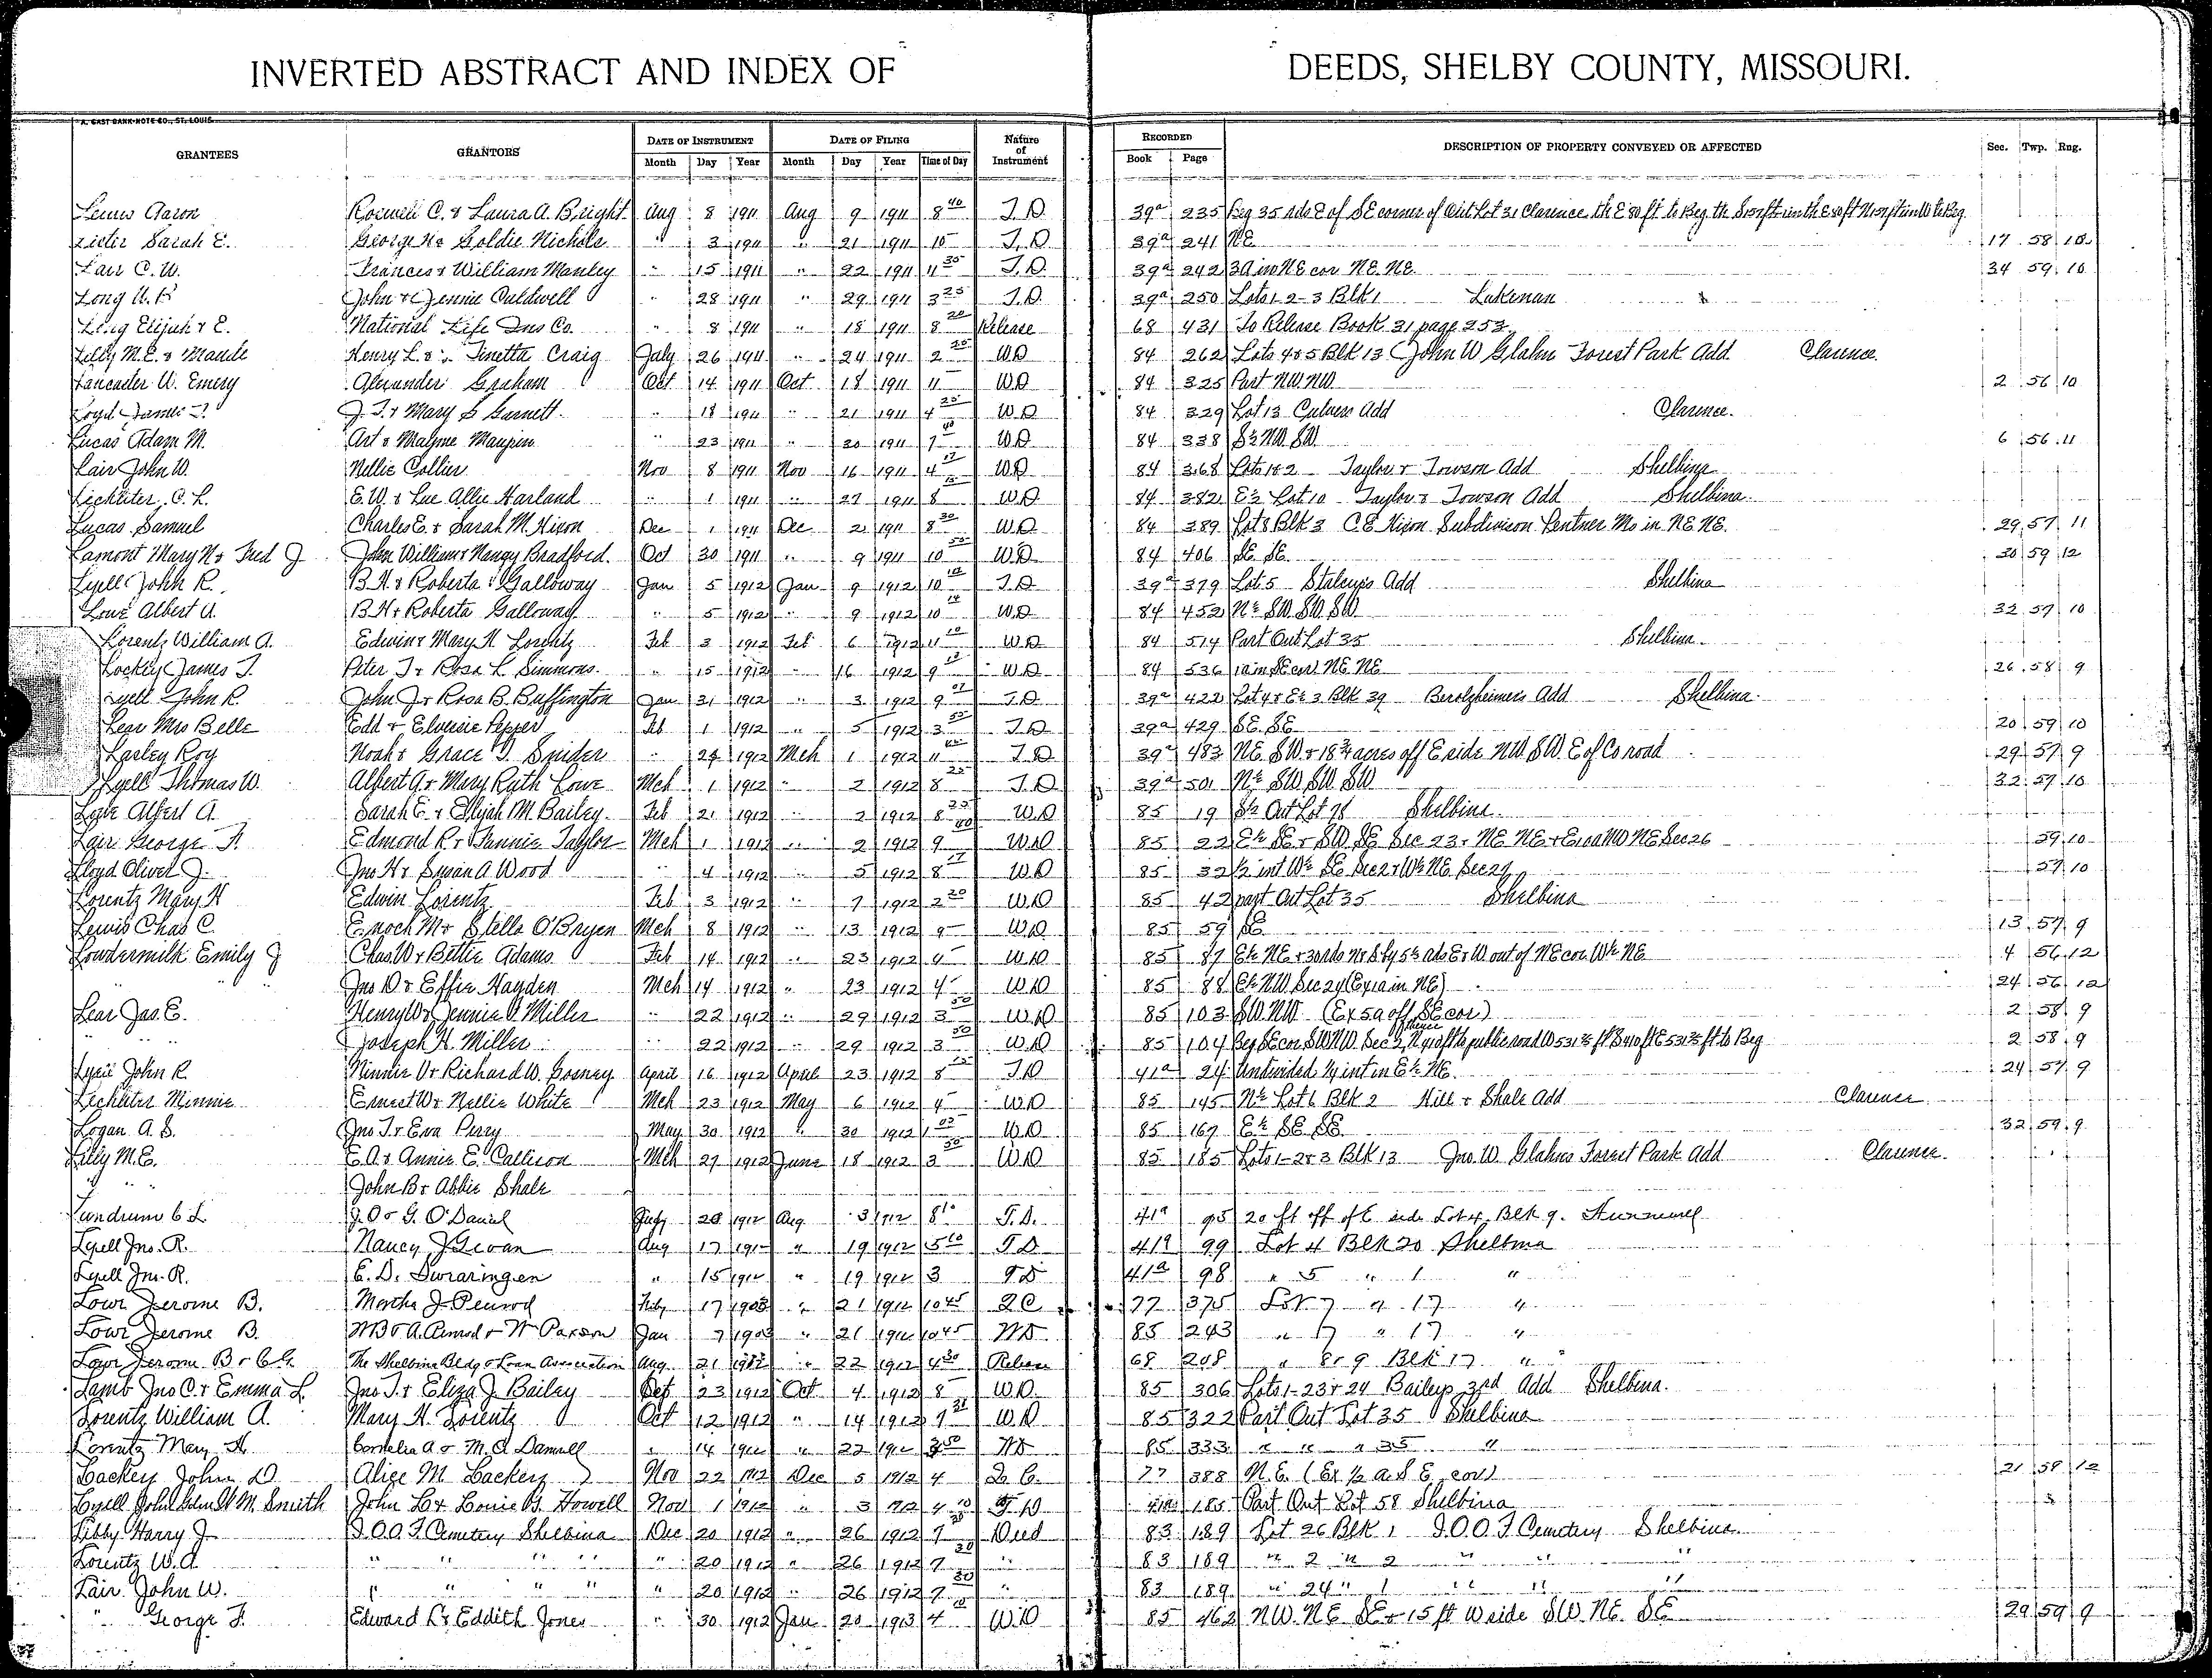 INVERTED ABSTRACT AND INDEX OF DEEDS, SHELBY COUNTY, MISSOURI.
A. GAST BANK-NOTE CO., ST. LOUIS.
GRANTEES GRANTORS DATE OF INSTRUMENT DATE OF FILING Nature of Instrument RECORDED DESCRIPTION OF PROPERTY CONVEYED OR AFFECTED Sec. Twp. Rng.
Month Day Year Month Day Year Time of Day Book Page
Aaron C. & Laura A. Bright Aug 8 1911 Aug 9 1911 8 40 T.D. 39a 235 Beg 35 rds E of SE corner of Out Lot 31 Clarence
Sarah E. George & Goldie Nichols " 3 1911 " 21 1911 10 T.D. 39a 241 NE 17 58 10
Lair C. W. Frances & William Manley " 15 1911 " 22 1911 11 T.D. 39a 242 3a in NE cor NE NE 34 59 10
Long John & Jennie Caldwell " 28 1911 " 29 1911 3 25 T.D. 39a 250 Lots 1-2-3 Blk 1 Lakenan
Long Elijah & E. National Life Ins Co. " 8 1911 " 18 1911 8 20 Release 68 431 To Release Book 31 page 253
Lilly M.E. & Maude Henry L. & Tinetta Craig July 26 1911 " 24 1911 2 W.D. 84 262 Lots 4 & 5 Blk 13 John W Glahn Forest Park Add Clarence
Lancaster U. Emery Alexander Graham Oct 14 1911 Oct 18 1911 11 W.D. 84 325 Part NW NW 2 56 10
Loyd J. T. & Mary S Garnett " 18 1911 " 21 1911 4 W.D. 84 329 Lot 13 Culvers Add Clarence
Lucas Adam M. Art & Mayme Maupin " 23 1911 " 30 1911 W.D. 84 338 S½ NW SW 6 56 11
Lair John W. Nellie Collier Nov 8 1911 Nov 16 1911 4 W.D. 84 368 Lots 1 & 2 Taylor & Towson Add Shelbina
Lichliter C. L. E. W. & Lue Allie Harland " 1 1911 " 27 1911 8 W.D. 84 382 E½ Lot 10 Taylor & Towson Add Shelbina
Lucas Samuel Charles E. & Sarah M. Hixon Dec 1 1911 Dec 2 1911 8 30 W.D. 84 389 Lot 8 Blk 3 C.E. Hixon Subdivision Lentner Mo in NE NE 29 57 11
Lamont Mary N & Fred J John William & Nancy Bradford Oct 30 1911 " 9 1911 10 W.D. 84 406 SE SE 30 59 12
Lyell John R. B.H. & Roberta Galloway Jan 5 1912 Jan 9 1912 10 T.D. 39a 379 Lot 5 Staleys Add Shelbina
Lowe Albert A. B.H. & Roberta Galloway " 5 1912 " 9 1912 10 W.D. 84 452 N½ SW SW SW 32 57 10
Lorentz William A. Edwin & Mary H. Lorentz Feb 3 1912 Feb 6 1912 11 W.D. 84 514 Part Out Lot 35 Shelbina
Lockey James T. Peter J & Rosa L Simmons " 15 1912 " 16 1912 9 W.D. 84 536 1a in SE cor NE NE 26 58 9
Lyell John R. John J & Rosa B. Buffington Jan 31 1912 " 3 1912 9 T.D. 39a 422 Lot 4 & E½ 3 Blk 39 Berolzheimers Add Shelbina
Lear Mrs Belle Edd & Pepper Feb 1 1912 " 5 1912 3 T.D. 39a 429 SE SE 20 59 10
Lasley Roy Noah & Grace J. Snider " 24 1912 Mch 1 1912 11 T.D. 39a 483 NE SW & 18¾ acres off E side NW SW E of Co road 29 57 9
Lyell Thomas W. Albert A & Mary Ruth Lowe Mch 1 1912 " 2 1912 8 T.D. 39a 501 N½ SW SW SW 32 57 10
Lyle Albert A. Sarah E. & Elijah M. Bailey Feb 21 1912 " 2 1912 8 W.D. 85 19 S½ Out Lot 78 Shelbina
Lair George F. Edmond R & Fannie Taylor Mch 1 1912 " 2 1912 9 W.D. 85 22 E½ SE & SW SE Sec 23 & NE NE & E 10a NW NE Sec 26 59 10
Lloyd Oliver J. Jno H & Susan A Wood " 4 1912 " 5 1912 8 W.D. 85 32 57 10
Lorentz Mary H Edwin Lorentz Feb 3 1912 " 7 1912 2 20 W.D. 85 42 part Out Lot 35 Shelbina
Lewis Chas C. Enoch M & Stella O'Bryen Mch 8 1912 " 13 1912 9 W.D. 85 59 SE 13 57 9
Lowdermilk Emily J Chas W & Bettie Adams Feb 14 1912 " 23 1912 4 W.D. 85 87 4 56 12
Jno D & Effie Hayden Mch 14 1912 " 23 1912 4 W.D. 85 88 E½ NW Sec 24 (Ex 1a in NE) 24 56 12
Lear Jas. E. Henry W & Jennie V. Miller " 22 1912 " 29 1912 3 50 W.D. 85 103 SW NW (Ex 5a off SE cor) 2 58 9
" " Joseph H. Miller " 22 1912 " 29 1912 3 50 W.D. 85 104 Beg SE cor SW NW Sec 2, thence N 410 ft to public road W 531 ft S 410 ft E 531 ft to Beg 2 58 9
John R. Minnie V & Richard W. Gosney April 16 1912 April 23 1912 8 T.D. 41a 24 Undivided ¼ int in E½ NE 24 57 9
Lichliter Minnie Ernest W & Nellie White Mch 23 1912 May 6 1912 4 W.D. 85 145 N½ Lot 6 Blk 2 Hill & Shale Add Clarence
Logan A. S. Jno T. & Eva Perry May 30 1912 " 30 1912 1 W.D. 85 167 E½ SE SE 32 59 9
Lilly M.E. E. A. & Annie E. Callison Mch 27 1912 June 18 1912 3 W.D. 85 185 Lots 1-2 & 3 Blk 13 Jno. W Glahns Forest Park Add Clarence
" " John B & Abbie Shale
J. O & G. O'Daniel July 20 1912 Aug 3 1912 8 10 T.D. 41a 95 20 ft off of E side Lot 4 Blk 9 Hunnewell
Lyell Jno. R. Nancy J Aug 17 1912 " 19 1912 5 10 T D 41a 99 Lot 4 Blk 20 Shelbina
Lyell Jno. R. E. D. Swearingen " 15 1912 " 19 1912 3 T D 41a 98 " 5 " 1 "
Lowe Jerome B. Martha J Penrod 17 1903 " 21 1912 10 45 Q C 77 375 Lot 7 " 17 "
Lowe Jerome B. Jan 7 1903 " 21 1912 10 45 W D 85 243 " 7 " 17 "
Jerome B & C.G. The Shelbina Bldg & Loan Association Aug 21 1912 " 22 1912 4 30 Release 68 208 " 8 & 9 Blk 17 "
Lamb Jno C. & Emma L. Jno T. & Eliza J. Bailey Sept 23 1912 Oct 4 1912 8 W.D. 85 306 Lots 1-23 & 24 Baileys 3rd Add Shelbina
Lorentz William A. Mary H. Lorentz Oct 12 1912 " 14 1912 9 W.D. 85 322 Part Out Lot 35 Shelbina
Lorentz Mary H. Cornelia A & M. D Damrell " 14 1912 " 22 1912 3 50 W D 85 333 " " " 35 "
Lackey John D. Alice M Lackey Nov 22 1912 Dec 5 1912 4 Q. C. 77 388 N.E. (Ex ½ a. S E cor) 21 58 12
Lyell John W M. Smith John L & Louie B. Howell Nov 1 1912 " 3 1912 4 T D 41a 185 Part Out Lot 58 Shelbina
Libby Harry J. I.O.O.F. Cemetery Shelbina Dec 20 1912 " 26 1912 7 30 Deed 83 189 Lot 26 Blk 1 I.O.O.F Cemetery Shelbina
Lorentz W. A. " " " " " 20 1912 " 26 1912 7 30 " 83 189 " 2 " 2 " " "
Lair John W. " " " " " 20 1912 " 26 1912 7 30 " 83 189 " 24 " 1 " " "
" George F. Edward L & Eddith Jones " 30 1912 Jan 20 1913 4 W.D. 85 462 NW. NE SE & 15 ft W side SW. NE. SE 29 59 9